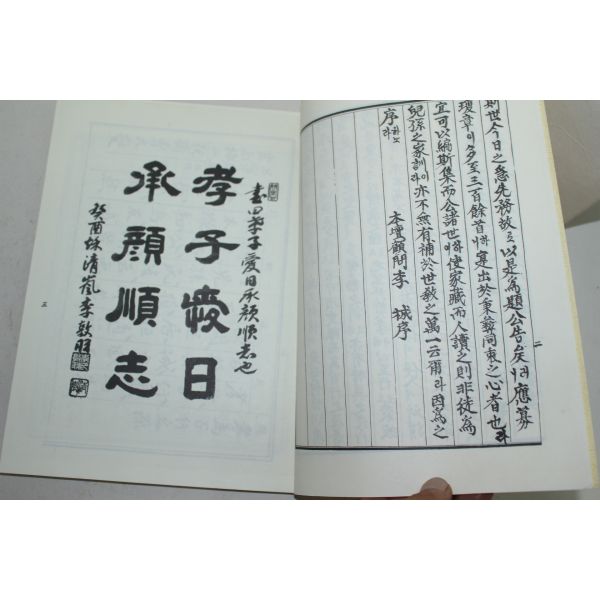 則世今日之急先務故로以是爲題公告矣러니應募
瓊章이多至三百餘首하니寔出於秉彝同衷之心者也
宜可以編斯集而公諸世하야使家藏而人讀之則非徒爲
兒孫之家訓이라亦不無有補於世敎之萬一云爾라因爲之
序하노라
本壇顧問 李 城序
二
書曰孝子愛日承顔順志也
孝子愛日
承顔順志
癸酉秋清嵐李敦
三